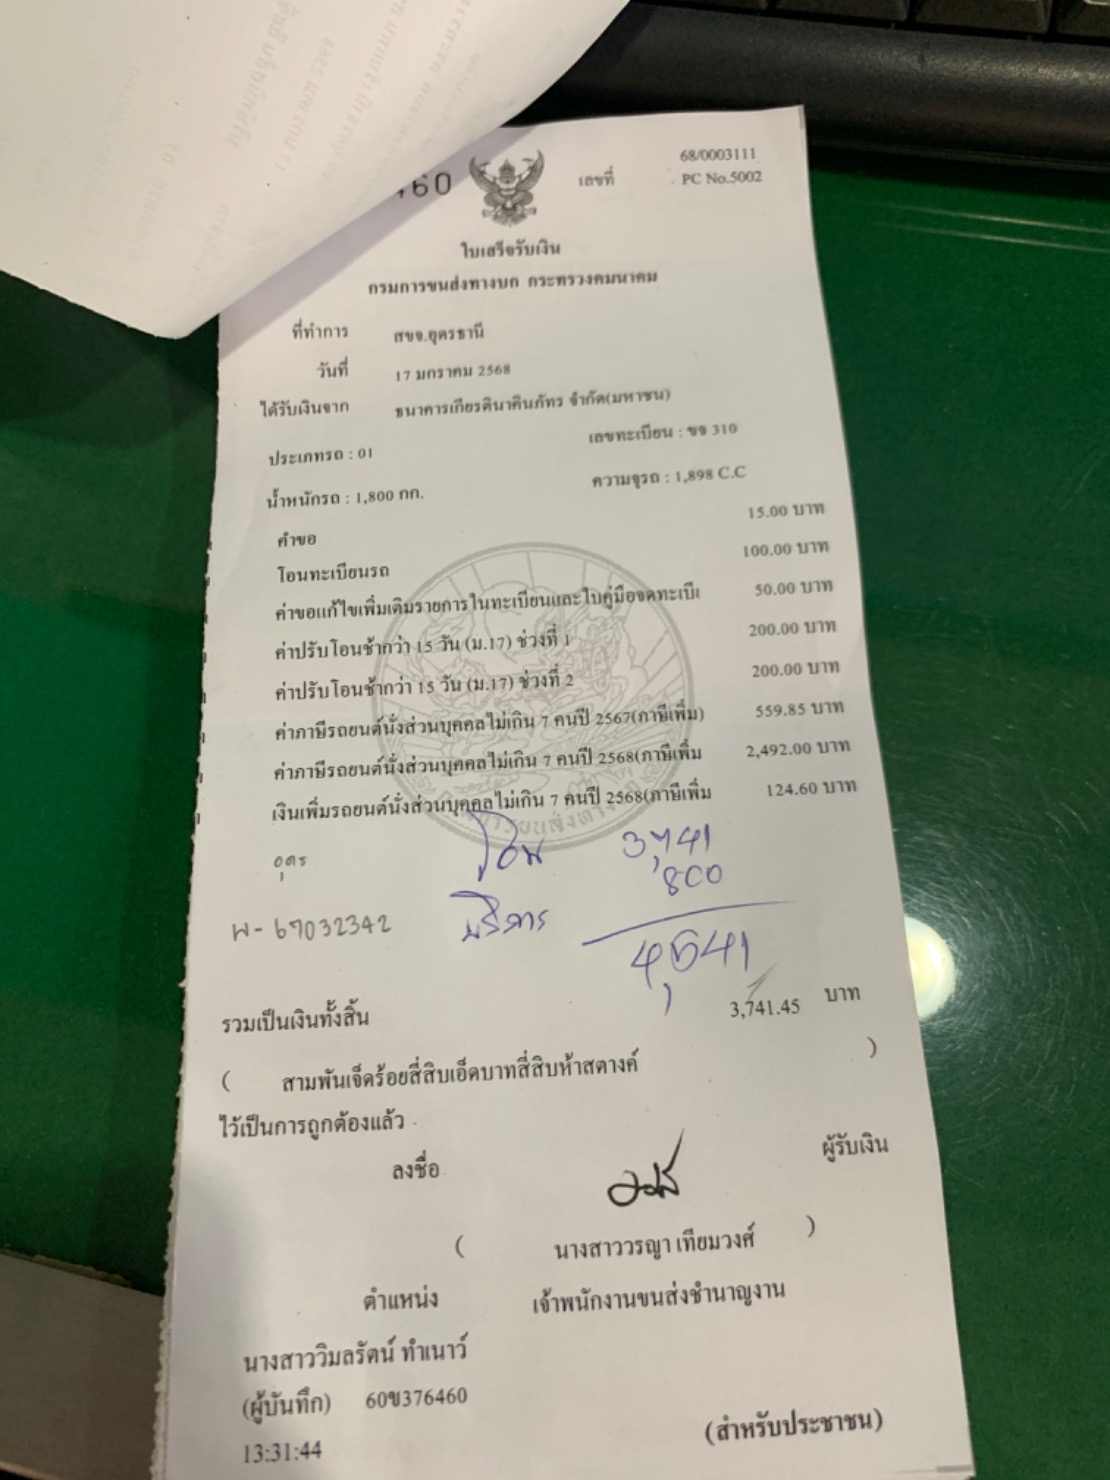 460
เลขที่ 68/0003111
PC No.5002
ใบเสร็จรับเงิน
กรมการขนส่งทางบก กระทรวงคมนาคม
ที่ทำการ สขจ.อุดรธานี
วันที่ 17 มกราคม 2568
ได้รับเงินจาก ธนาคารเกียรตินาคินภัทร จำกัด(มหาชน)
ประเภทรถ : 01 เลขทะเบียน : ขจ 310
น้ำหนักรถ : 1,800 กก. ความจุรถ : 1,898 C.C
คำขอ 15.00 บาท
โอนทะเบียนรถ 100.00 บาท
ค่าขอแก้ไขเพิ่มเติมรายการในทะเบียนและใบคู่มือจดทะเบีย 50.00 บาท
ค่าปรับโอนช้ากว่า 15 วัน (ม.17) ช่วงที่ 1 200.00 บาท
ค่าปรับโอนช้ากว่า 15 วัน (ม.17) ช่วงที่ 2 200.00 บาท
ค่าภาษีรถยนต์นั่งส่วนบุคคลไม่เกิน 7 คนปี 2567(ภาษีเพิ่ม) 559.85 บาท
ค่าภาษีรถยนต์นั่งส่วนบุคคลไม่เกิน 7 คนปี 2568(ภาษีเพิ่ม 2,492.00 บาท
เงินเพิ่มรถยนต์นั่งส่วนบุคคลไม่เกิน 7 คนปี 2568(ภาษีเพิ่ม 124.60 บาท
อุดร โอน 3,741
800
W-67032342 บริการ
4,541
รวมเป็นเงินทั้งสิ้น 3,741.45 บาท
( สามพันเจ็ดร้อยสี่สิบเอ็ดบาทสี่สิบห้าสตางค์ )
ไว้เป็นการถูกต้องแล้ว
ลงชื่อ ผู้รับเงิน
( นางสาววรญา เทียมวงศ์ )
ตำแหน่ง เจ้าพนักงานขนส่งชำนาญงาน
นางสาววิมลรัตน์ ทำเนาว์
(ผู้บันทึก) 60ข376460
13:31:44 (สำหรับประชาชน)